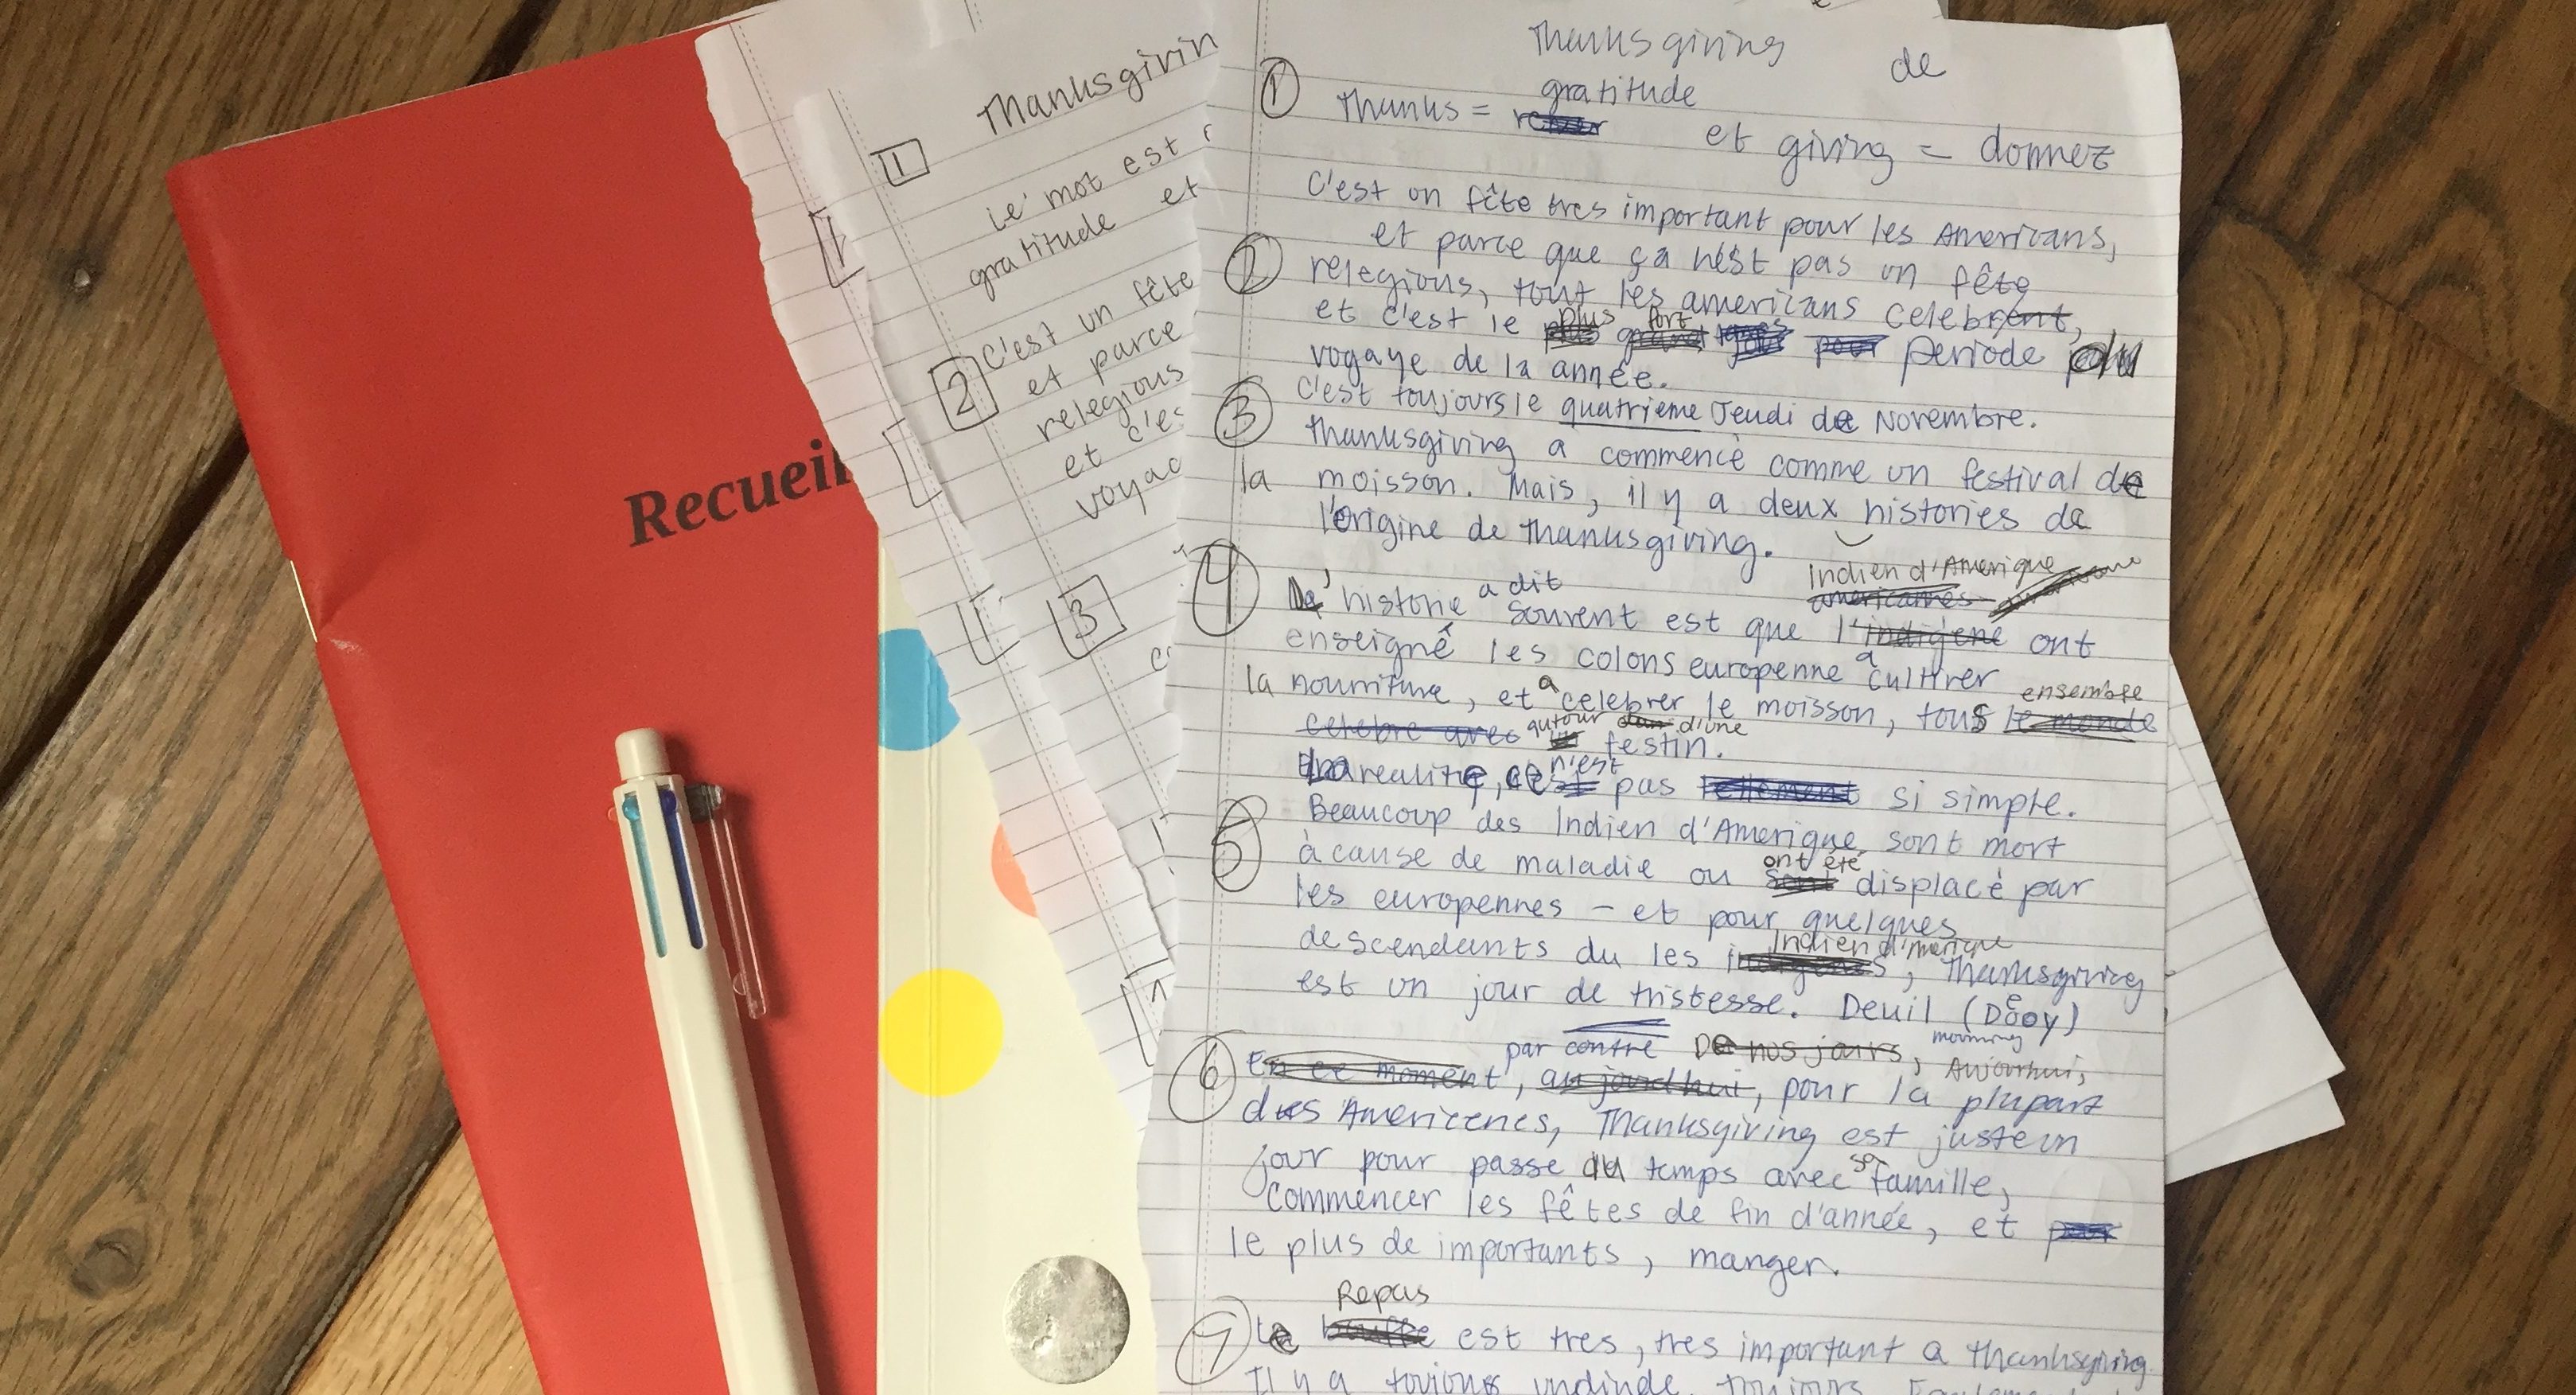 Recueil
Thanksgivin
1
Le mot est
gratitude et
2
C'est un fête
et parce
relegious
et c'es
voyag
3
Thanksgiving
de
1
gratitude
Thanks = et giving = donnez
C'est on fête tres important pour les Americans,
et parce que ça n'est pas un fête
2
relegious, tout les americans celebrent,
et c'est le plus fort periode du
voyage de la année.
3
C'est toujours le quatrieme Jeudi de Novembre.
Thanksgiving a commencé comme un festival de
la moisson. Mais, il y a deux histories de
l'origine de Thanksgiving.
4
Indien d'Amerique
americannes
L'historie a dit souvent est que l'indigene ont
enseigné les colons europenne a cultiver
la nourriture, et a celebrer le moisson, tous le monde
ensemble
celebre avec autour d'une festin.
realite, ce n'est pas tellement si simple.
5
Beaucoup des Indien d'Amerique sont mort
à cause de maladie ou ont été displacé par
les europennes - et pour quelques
descendants du les Indien d'Amerique, Thanksgiving
est un jour de tristesse. Deuil (Dooy)
mourning
par contre De nos jours, Aujourhui,
6
En ce moment, au jourd hui, pour la plupart
des Americenes, Thanksgiving est juste un
jour pour passe du temps avec sa famille,
commencer les fêtes de fin d'année, et
le plus de importants, manger.
Repas
7
Le est tres, tres important a Thanksgiving.
Il y a toujours undinde, toujours